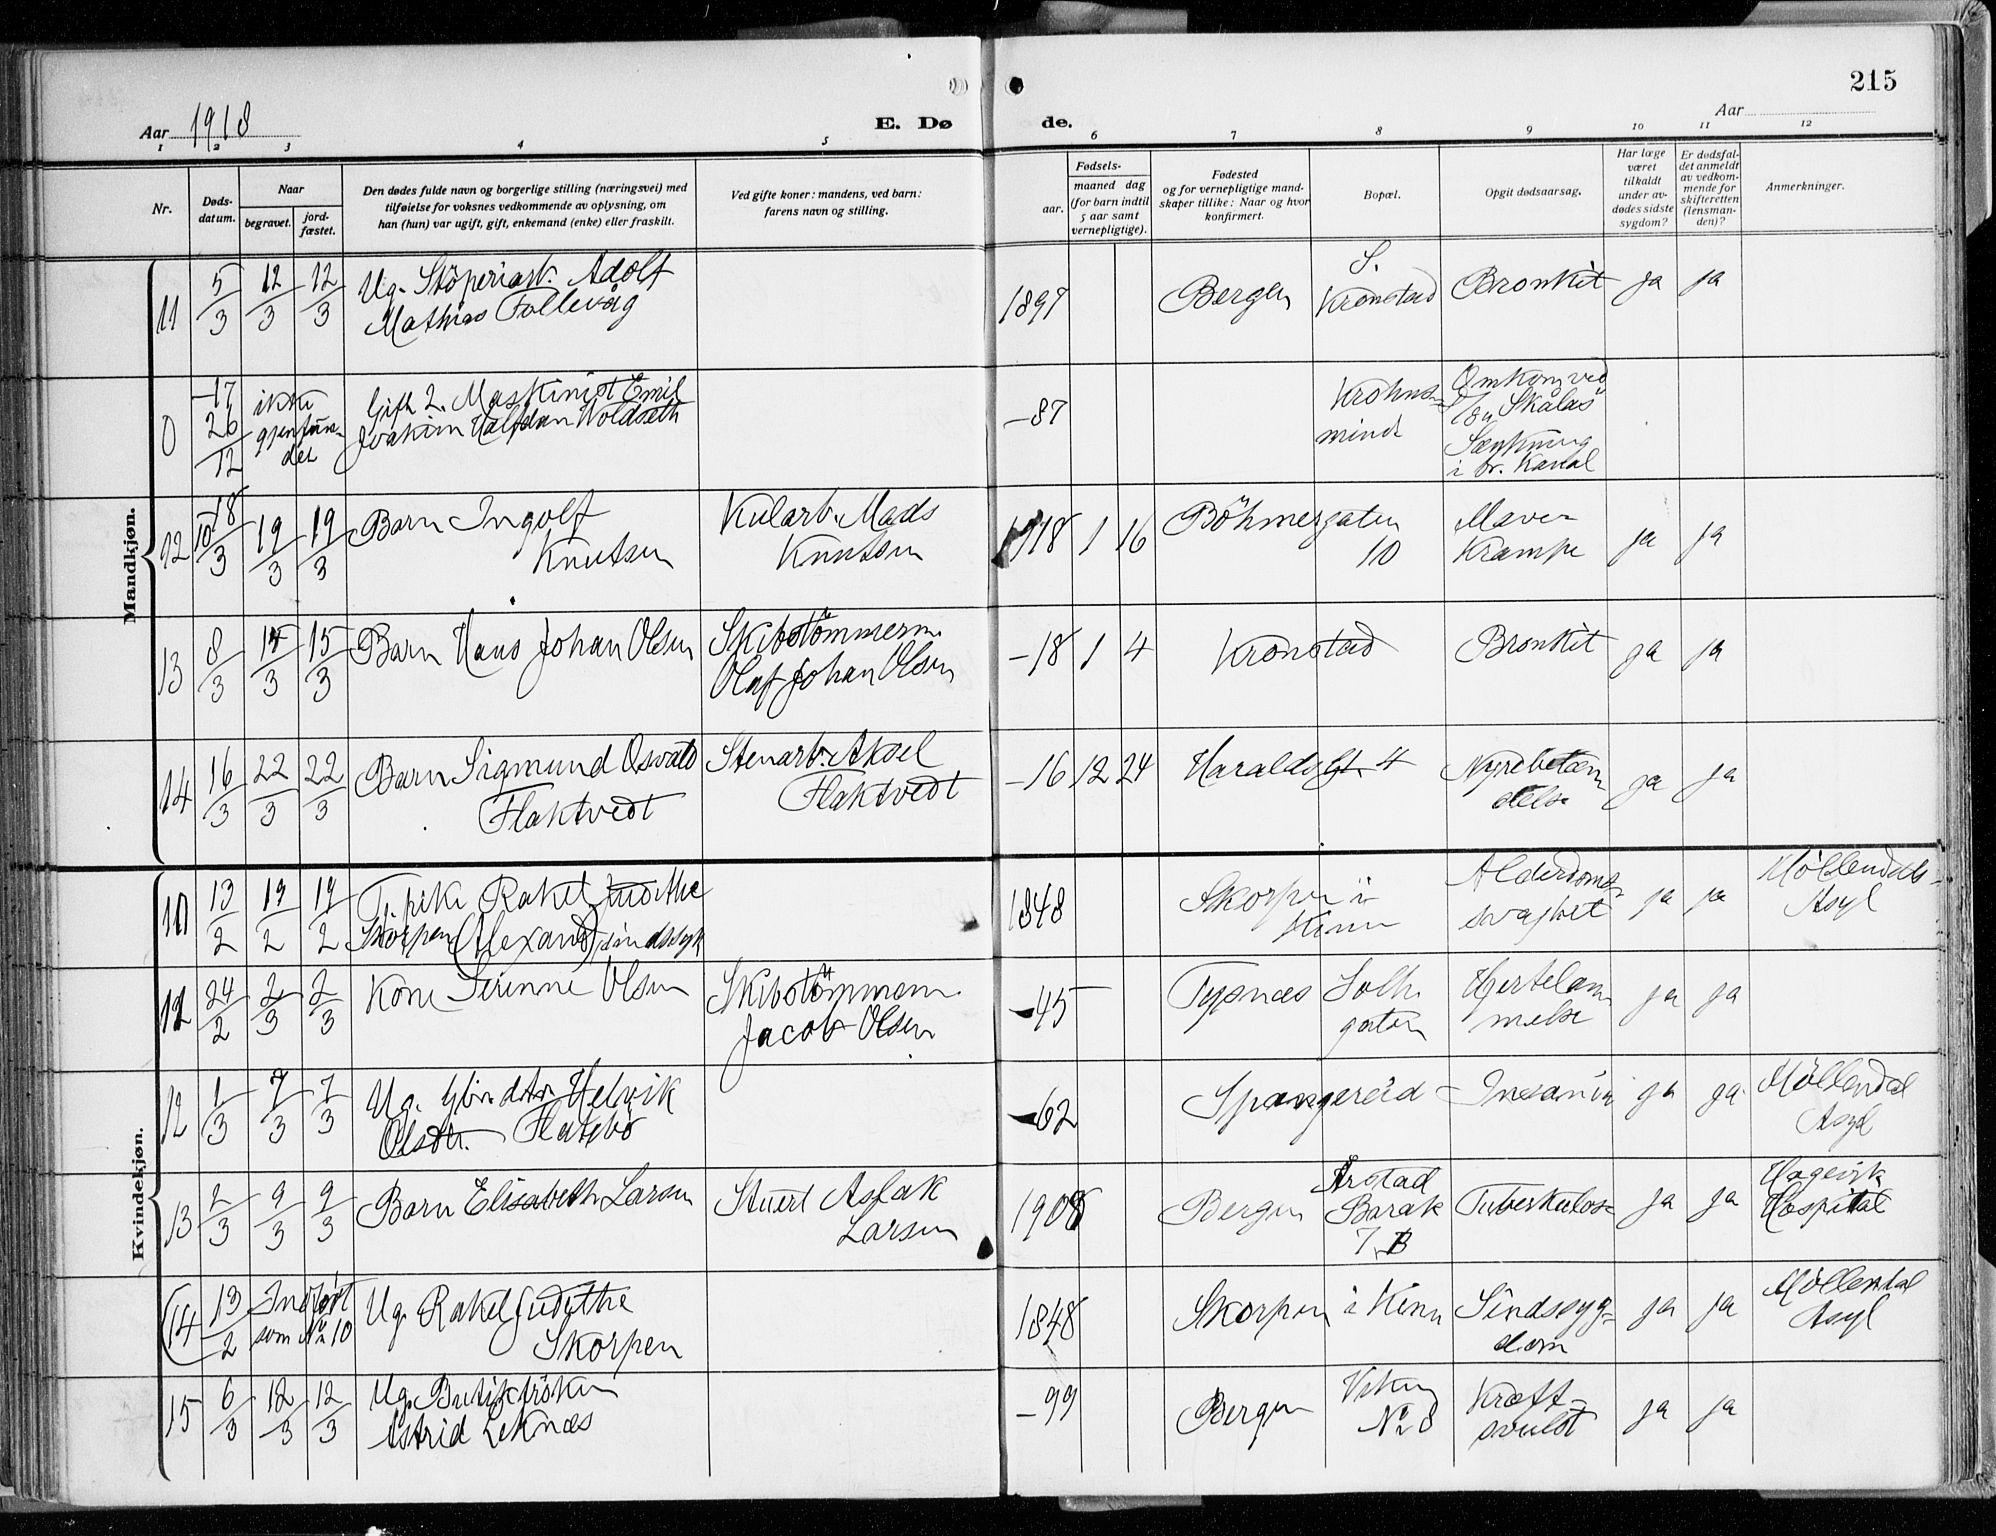 215
Aar 1918
E. Dø de.
Aar
1 2 3 4 5 6 7 8 9 10 11 12
Nr.
Døds-
datum.
Naar
begravet.
jord-
fæstet.
Den dødes fulde navn og borgerlige stilling (næringsvei) med
tilføielse for voksnes vedkommende av oplysning, om
han (hun) var ugift, gift, enkemand (enke) eller fraskilt.
Ved gifte koner: mandens, ved barn:
farens navn og stilling.
Fødsels-
aar.
maaned dag
(for barn indtil
5 aar samt
vernepligtige).
Fødested
og for vernepligtige mand-
skaper tillike: Naar og hvor
konfirmert.
Bopæl.
Opgit dødsaarsag.
Har læge
været
tilkaldt
under av-
dødes sidste
sygdom?
Er dødsfal-
det anmeldt
av vedkom-
mende for
skifteretten
(lensman-
den)?
Anmerkninger.
Mandkjøn.
11 5/3 12/3 12/3 Ug. Stöperiarb. Adolf
Mathias Follevåg
1897 Bergen S.
Kronstad Bronkit ja ja
0 -17
26/12 ikke
gjenfun-
det
Gift 2. Maskinist Emil
Joakim Halfdan Woldseth
-87 Krohns-
minde
Omkom ved
D/S "Skålas"
Sænkning
i br. Kanal
12 -18
10/3 19/3 19/3 Barn Ingolf
Knutsen
Kularb. Mads
Knutsen
1918 1 16 Böhmergaten
10
Mave-
Krampe ja ja
13 8/3 15/3 15/3 Barn Hans Johan Olsen
Skibstömmerm.
Olaf Johan Olsen
-18 1 4 Kronstad Bronkit ja ja
14 16/3 22/3 22/3 Barn Sigmund Osvald
Flaktvedt
Stenarb. Aksel
Flaktvedt
-16 12 24 Haraldsgt. 4 Nyrebetæn
delse ja ja
Kvindekjøn.
10 13/2 19/2 19/2 Pike Rakel Judithe
Skorpen (Alexand) sindssyk
1848 Skorpen i
Kinn
Alderdoms-
svaghet ja ja Möllendals
Asyl
12 24/2 2/3 2/3 Kone Serinne Olsen
Skibstömmerm.
Jacob Olsen
-45 Tysnæs Solh.
gaten
Hjertelam
melse ja ja
12 1/3 7/3 7/3 Ug. Helvik
Olsdtr. Flatebö
-62 Spangereid - Insania ja ja Möllendal
Asyl
13 2/3 9/3 9/3 Barn Elisabeth Larsen
Stuert Aslak
Larsen
1908 Bergen Årstad
Barak
7. B
Tuberkulos- ja ja Hagevik
Hospital
(14 13/2 Indfört
som No 10
Ug. Rakel Judithe
Skorpen
1848 Skorpen i Kinn Sindssyg-
dom ja ja Möllendal
Asyl
15 6/3 12/3 12/3 Ug. Butikfröken
Astrid Leknæs
-99 Bergen Viken
No 8
Kræft-
svulst ja ja